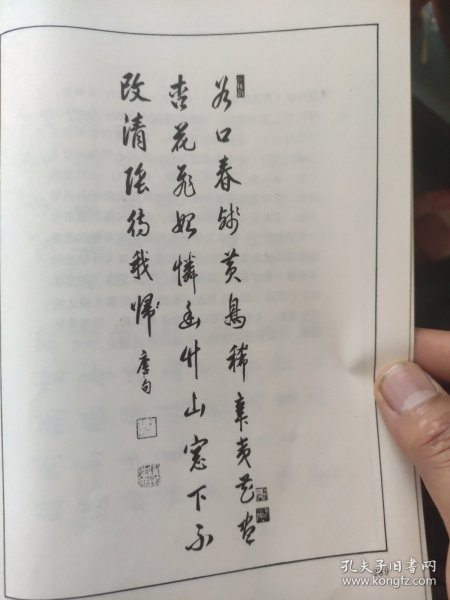 谷口春残黄鸟稀辛夷花尽
杏花飞始怜幽竹山窗下不
改清阴待我归 唐句
孔夫子旧书网
www.kongfz.com